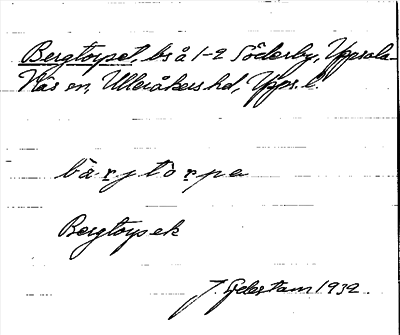 Bergtorpet, bs å 1-2 Söderby, Uppsala-
Näs sn, Ulleråkers hd, Upps. l.
bärjtorpe
Bergtorp ek
1932